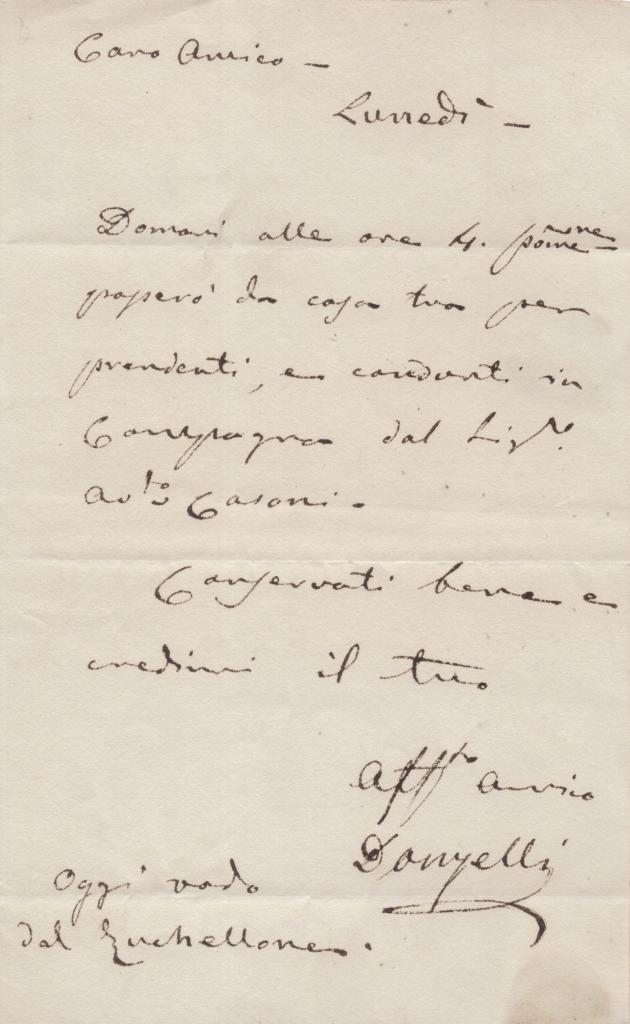 Caro Amico –
Lunedì –
Domani alle ore 4. pome^ne
passerò da casa tua per
prenderti, e condurti in
Campagna dal Sig^r.
Av^to Casoni.
Conservati bene e
credimi il tuo
Aff^to amico
Donzelli
Oggi vado
dal Zuchellone.